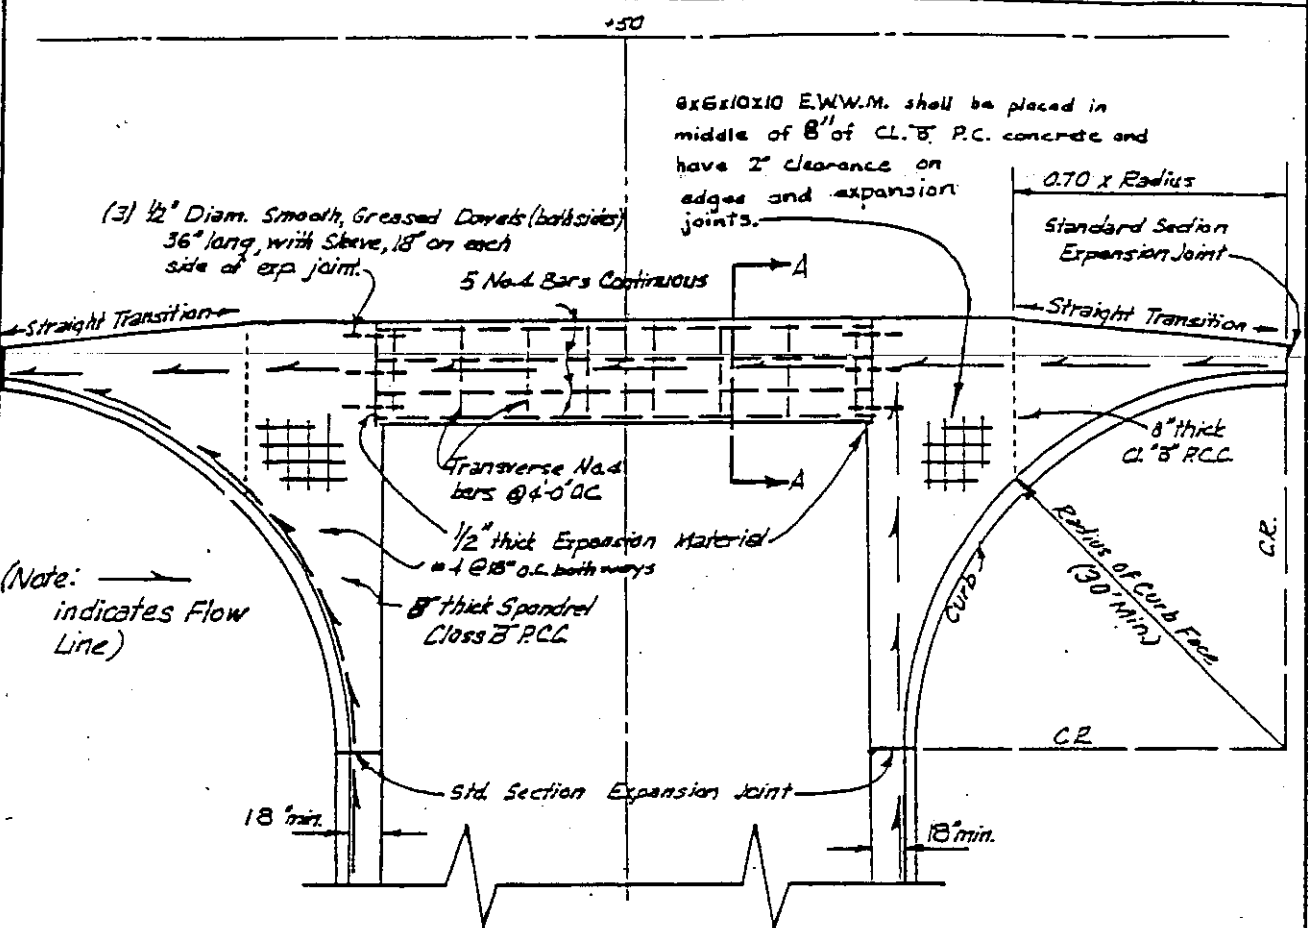 +50
6x6x10x10 E.W.W.M. shall be placed in
middle of 8" of CL. "B" P.C. concrete and
have 2" clearance on
edges and expansion
joints.
0.70 x Radius
(3) 1/2" Diam. Smooth, Greased Dowels (both sides)
36" long, with Sleeve, 18" on each
side of exp. joint.
Standard Section
Expansion Joint
5 No.4 Bars Continuous
A
Straight Transition
Straight Transition
8" thick
Cl. "B" P.C.C.
Transverse No.4
bars @ 4'-0" O.C.
A
1/2" thick Expansion Material
#4 @ 18" o.c. both ways
(Note:
indicates Flow
Line)
8" thick Spandrel
Class B P.C.C.
Curb
Radius of Curb Face
(30' Min.)
C.R.
C.R.
Std. Section Expansion Joint
18" min.
18" min.